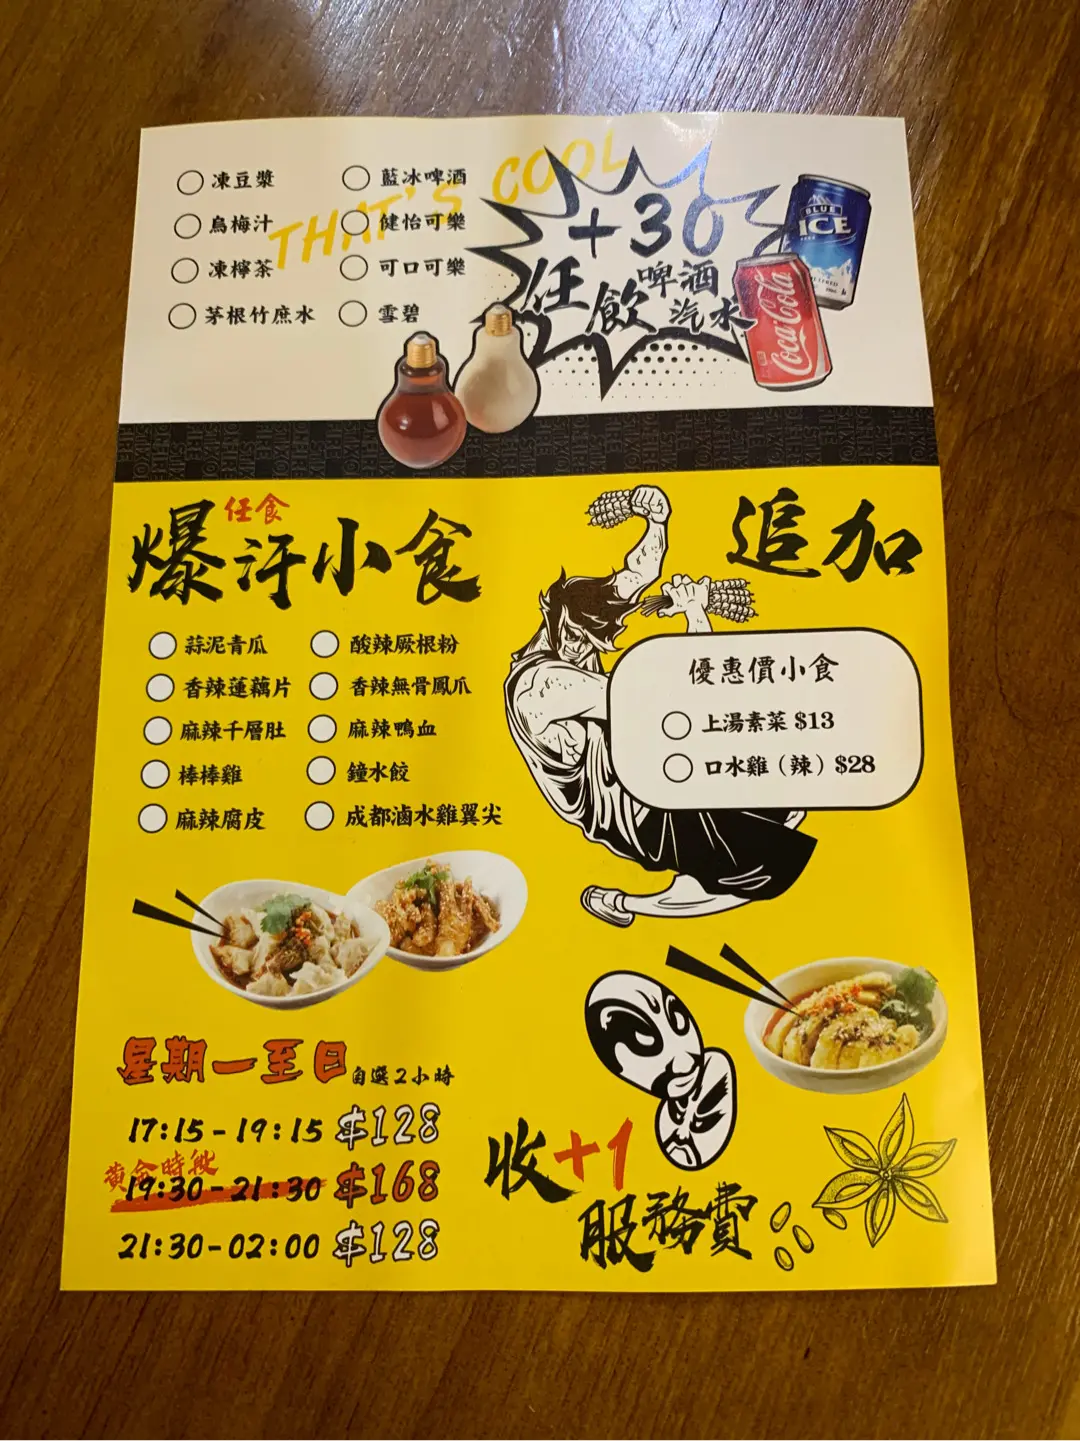 THAT'S COOL
凍豆漿
烏梅汁
凍檸茶
茅根竹庶水
藍冰啤酒
健怡可樂
可口可樂
雪碧
+30
任飲啤酒汽水
BLUE
ICE
Coca-Cola
任食
爆汗小食
蒜泥青瓜
香辣蓮藕片
麻辣千層肚
棒棒雞
麻辣腐皮
酸辣厥根粉
香辣無骨鳳爪
麻辣鴨血
鐘水餃
成都滷水雞翼尖
追加
優惠價小食
上湯素菜 $13
口水雞（辣）$28
星期一至日 自選2小時
17:15-19:15 $128
黃金時段
19:30-21:30 $168
21:30-02:00 $128
收+1
服務費